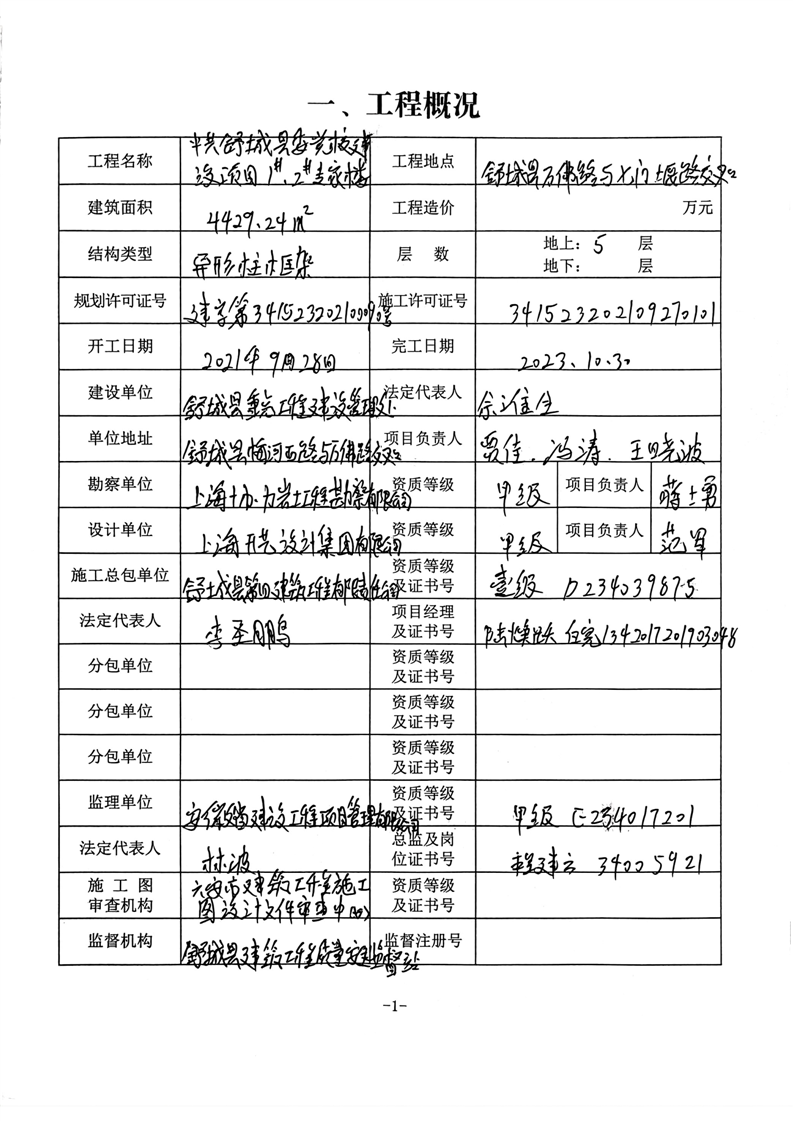 一、工程概况
工程名称 中共舒城县委党校建 工程地点 舒城县万佛路与七门堰路交叉口
设项目1#、2#专家楼
建筑面积 4429.24m² 工程造价 万元
结构类型 异形柱框架 层 数 地上：5 层
地下： 层
规划许可证号 建字第341523202100090号 施工许可证号 341523202109270101
开工日期 2021年9月28日 完工日期 2023.10.30
建设单位 舒城县重点工程建设管理处 法定代表人
单位地址 舒城县梅河西路与万佛路交叉口 项目负责人 贾佳、冯涛、王晓波
勘察单位 上海协力岩土工程勘察有限公司 资质等级 甲级 项目负责人 蒋士勇
设计单位 上海开艺设计集团有限公司 资质等级 甲级 项目负责人 范军
施工总包单位 舒城县第四建筑工程有限责任公司 资质等级
及证书号 壹级 D234039875
法定代表人 李圣鹏 项目经理
及证书号 1342017201903048
分包单位 资质等级
及证书号
分包单位 资质等级
及证书号
分包单位 资质等级
及证书号
监理单位 建设工程项目管理有限公司 资质等级
及证书号 甲级 E234017201
法定代表人 林波 总监及岗
位证书号 程建云 34005921
施工图
审查机构 六安市建筑工程施工
图设计文件审查中心 资质等级
及证书号
监督机构 舒城县建筑工程质量安全监督站 监督注册号
-1-